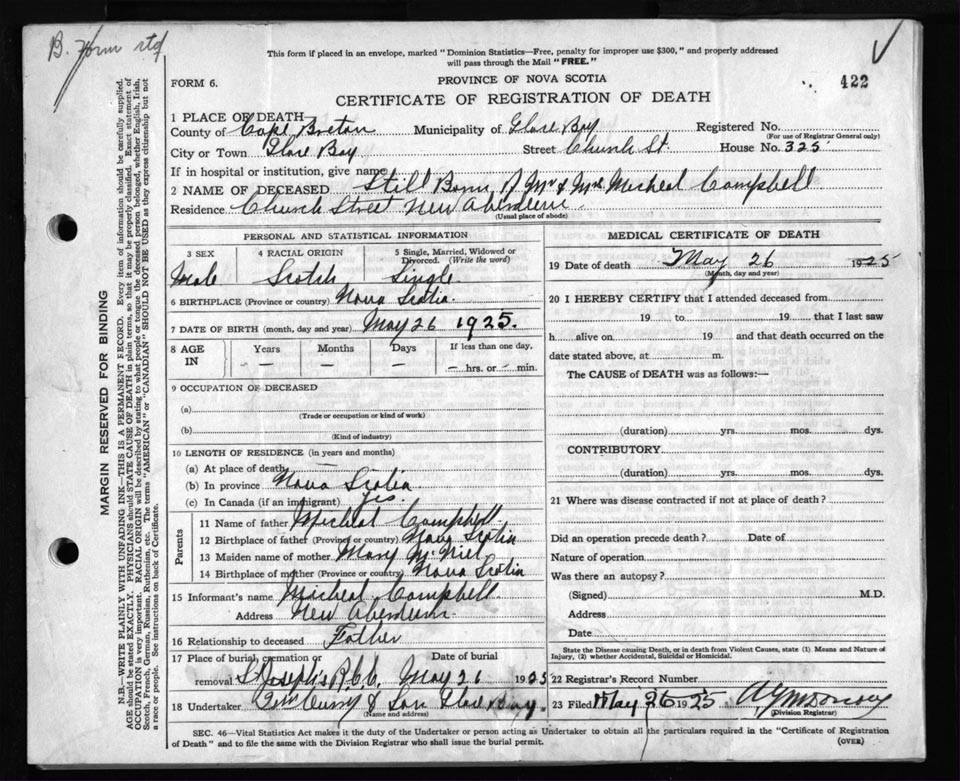 B. Form rtd
This form if placed in an envelope, marked "Dominion Statistics—Free, penalty for improper use $300," and properly addressed
will pass through the Mail "FREE."
FORM 6.
PROVINCE OF NOVA SCOTIA
422
CERTIFICATE OF REGISTRATION OF DEATH
1 PLACE OF DEATH
County of Cape Breton Municipality of Glace Bay Registered No.
(For use of Registrar General only)
City or Town Glace Bay Street Church St House No. 325
If in hospital or institution, give name
2 NAME OF DECEASED Still Born of Mr & Mrs Micheal Campbell
Residence Church Street New Aberdeen
(Usual place of abode)
PERSONAL AND STATISTICAL INFORMATION
3 SEX 4 RACIAL ORIGIN 5 Single, Married, Widowed or
Divorced. (Write the word)
Male Scotch Single
6 BIRTHPLACE (Province or country) Nova Scotia
7 DATE OF BIRTH (month, day and year) May 26 1925.
8 AGE IN Years Months Days If less than one day,
— — — — hrs. or — min.
9 OCCUPATION OF DECEASED
(a)
(Trade or occupation or kind of work)
(b)
(Kind of industry)
10 LENGTH OF RESIDENCE (in years and months)
(a) At place of death —
(b) In province Nova Scotia
(c) In Canada (if an immigrant) yes.
Parents
11 Name of father Micheal Campbell
12 Birthplace of father (Province or country) Nova Scotia
13 Maiden name of mother Mary McNiel
14 Birthplace of mother (Province or country) Nova Scotia
15 Informant's name Micheal Campbell
Address New Aberdeen
16 Relationship to deceased Father
17 Place of burial, cremation or Date of burial
removal St Joseph's R.C.C. May 26 1925
18 Undertaker Curry & Son Glace Bay.
(Name and address)
MEDICAL CERTIFICATE OF DEATH
19 Date of death May 26 1925
(Month, day and year)
20 I HEREBY CERTIFY that I attended deceased from
19 to 19 that I last saw
h alive on 19 and that death occurred on the
date stated above, at m.
The CAUSE of DEATH was as follows:—
(duration) yrs. mos. dys.
CONTRIBUTORY
(duration) yrs. mos. dys.
21 Where was disease contracted if not at place of death?
Did an operation precede death? Date of
Nature of operation
Was there an autopsy?
(Signed) M.D.
Address
Date
State the Disease causing Death, or in death from Violent Causes, state (1) Means and Nature of
Injury, (2) whether Accidental, Suicidal or Homicidal.
22 Registrar's Record Number
23 Filed May 26 1925
(Division Registrar)
SEC. 46—Vital Statistics Act makes it the duty of the Undertaker or person acting as Undertaker to obtain all the particulars required in the "Certificate of Registration
of Death" and to file the same with the Division Registrar who shall issue the burial permit.
(OVER)
MARGIN RESERVED FOR BINDING
N.B.—WRITE PLAINLY WITH UNFADING INK—THIS IS A PERMANENT RECORD. Every item of information should be carefully supplied.
AGE should be stated EXACTLY. PHYSICIANS should STATE CAUSE OF DEATH in plain terms, so that it may be properly classified. Exact statement of
OCCUPATION is very important. RACIAL ORIGIN will be described by stating to what people or tongue the deceased person belonged, whether English, Irish,
Scotch, French, German, Russian, Ruthenian, etc. The terms "AMERICAN" or "CANADIAN" SHOULD NOT BE USED as they express citizenship but not
a race or people. See instructions on back of Certificate.